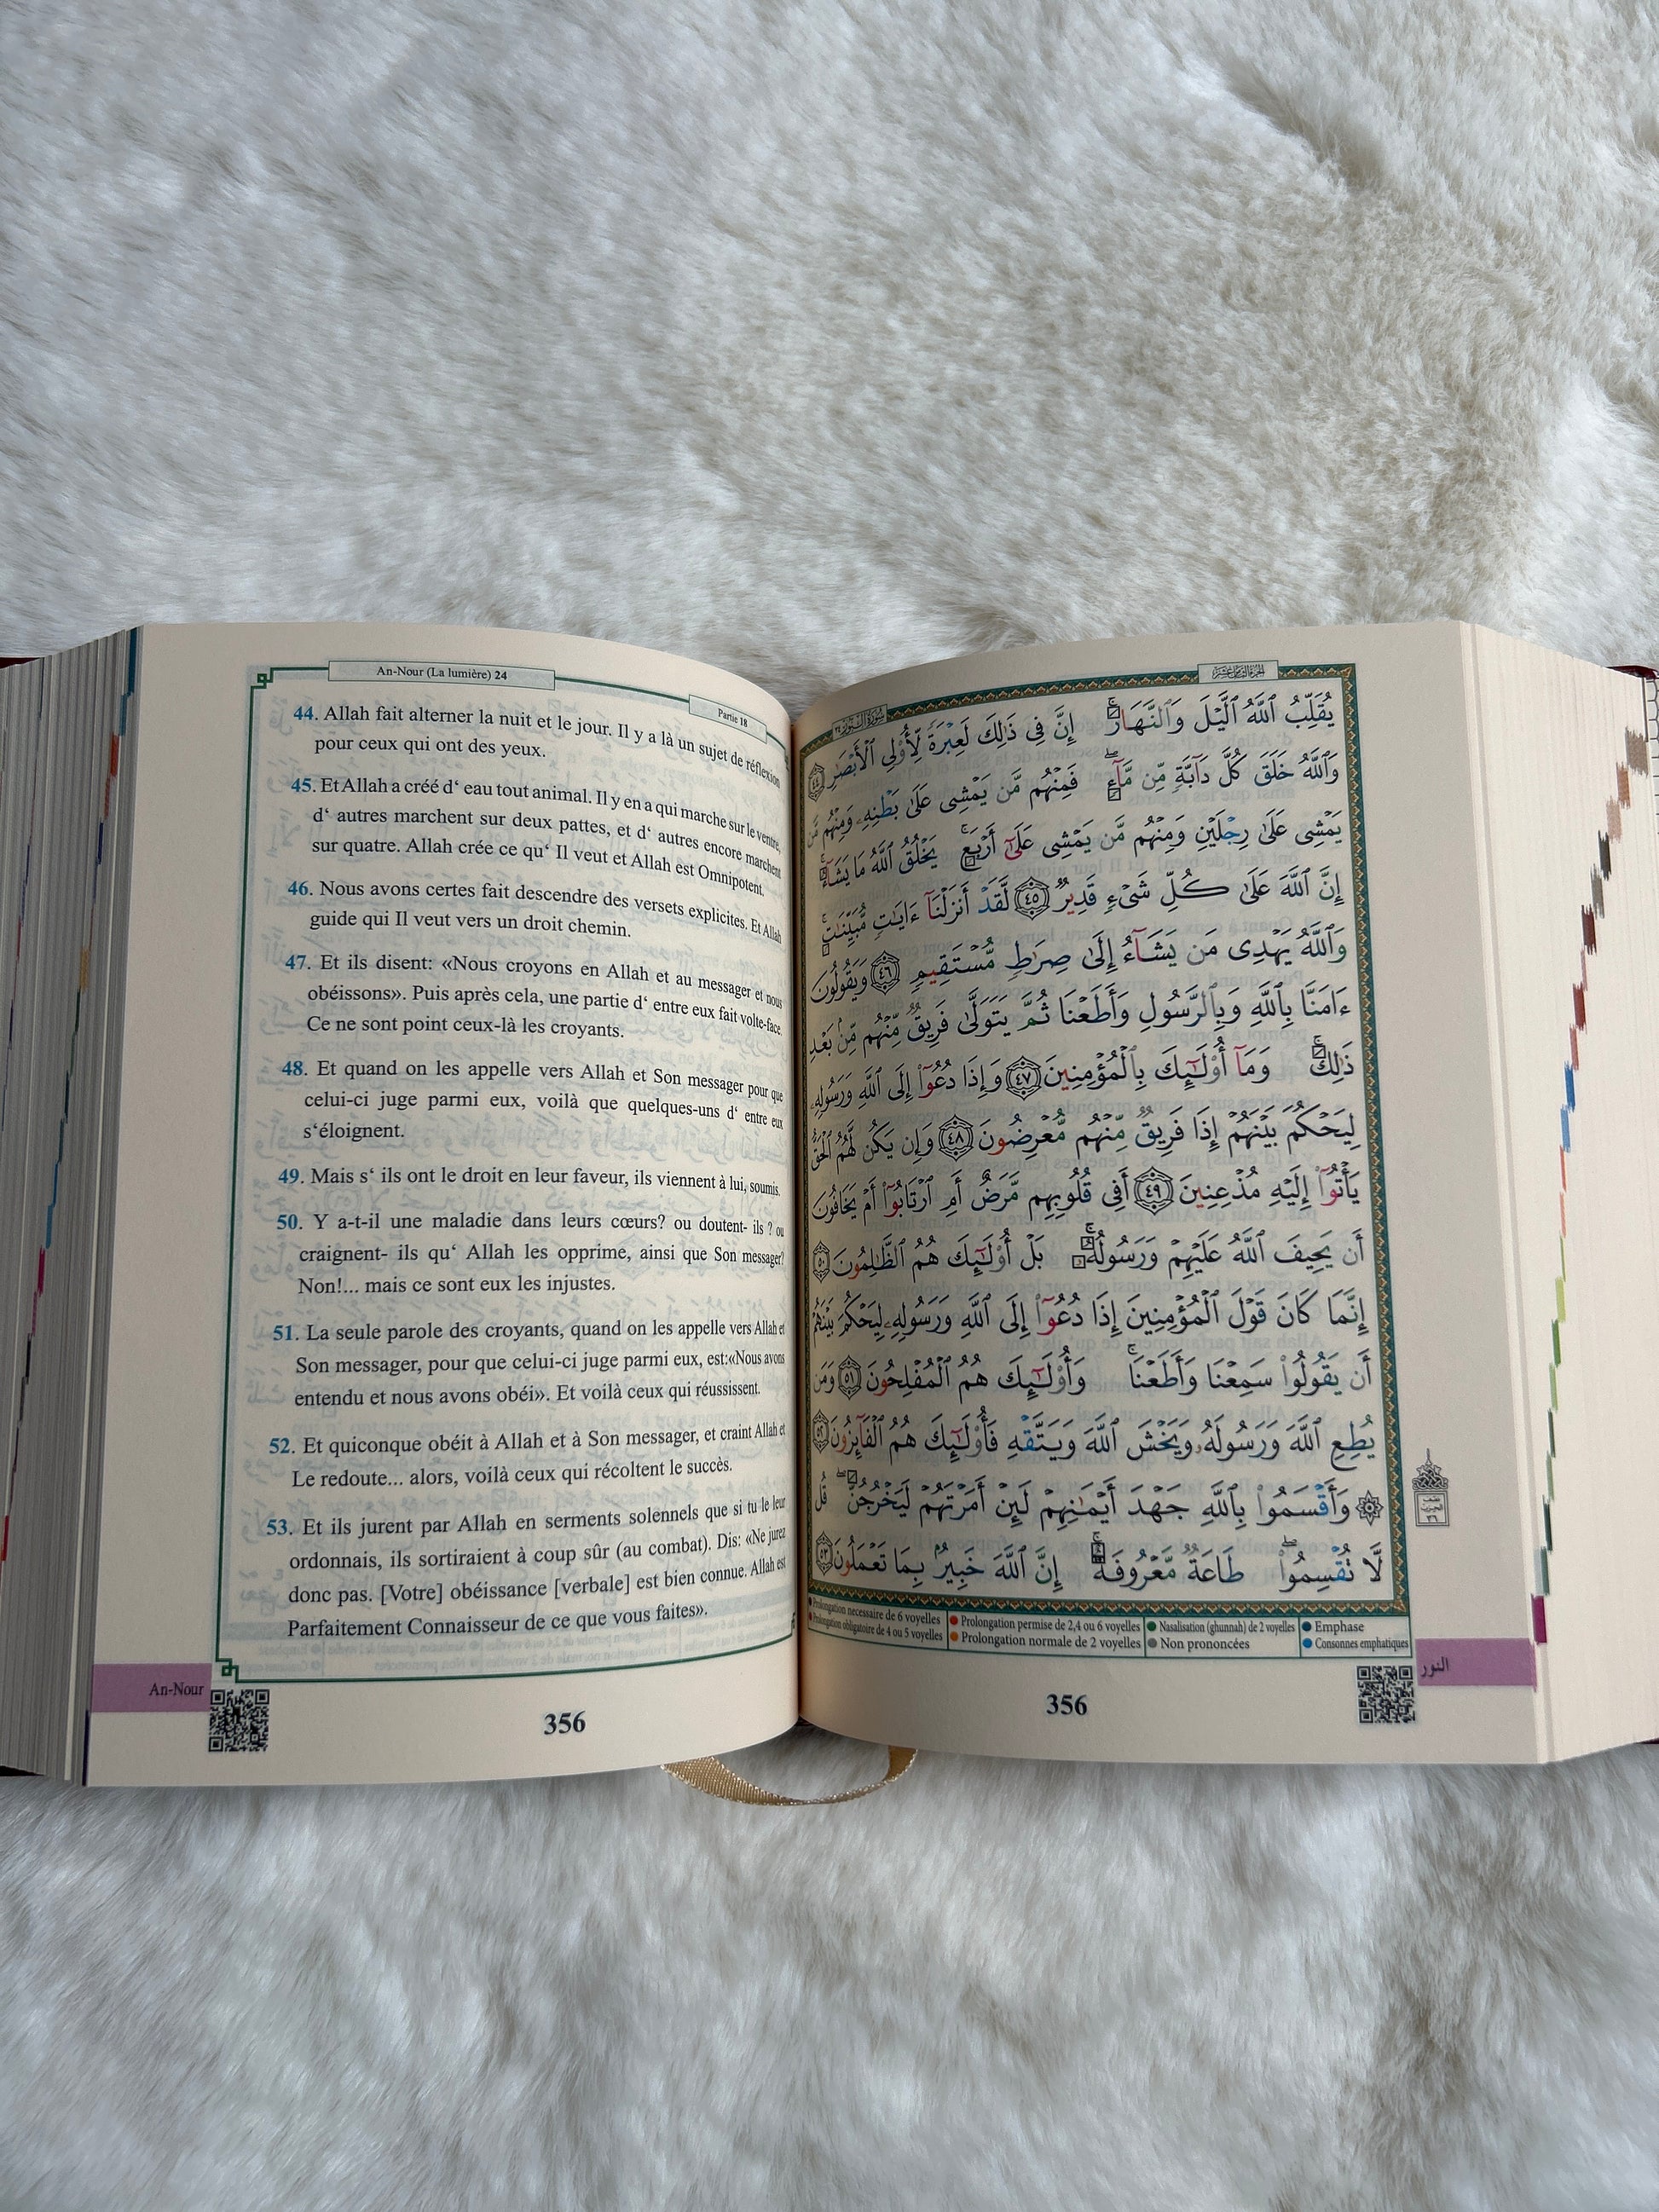 An-Nour (La lumière) 24
Partie 18
44. Allah fait alterner la nuit et le jour. Il y a là un sujet de réflexion
pour ceux qui ont des yeux.
45. Et Allah a créé d‘ eau tout animal. Il y en a qui marche sur le ventre,
d‘ autres marchent sur deux pattes, et d‘ autres encore marchent
sur quatre. Allah crée ce qu‘ Il veut et Allah est Omnipotent.
46. Nous avons certes fait descendre des versets explicites. Et Allah
guide qui Il veut vers un droit chemin.
47. Et ils disent: «Nous croyons en Allah et au messager et nous
obéissons». Puis après cela, une partie d‘ entre eux fait volte-face.
Ce ne sont point ceux-là les croyants.
48. Et quand on les appelle vers Allah et Son messager pour que
celui-ci juge parmi eux, voilà que quelques-uns d‘ entre eux
s‘éloignent.
49. Mais s‘ ils ont le droit en leur faveur, ils viennent à lui, soumis.
50. Y a-t-il une maladie dans leurs cœurs? ou doutent- ils ? ou
craignent- ils qu‘ Allah les opprime, ainsi que Son messager?
Non!... mais ce sont eux les injustes.
51. La seule parole des croyants, quand on les appelle vers Allah et
Son messager, pour que celui-ci juge parmi eux, est:«Nous avons
entendu et nous avons obéi». Et voilà ceux qui réussissent.
52. Et quiconque obéit à Allah et à Son messager, et craint Allah et
Le redoute... alors, voilà ceux qui récoltent le succès.
53. Et ils jurent par Allah en serments solennels que si tu le leur
ordonnais, ils sortiraient à coup sûr (au combat). Dis: «Ne jurez
donc pas. [Votre] obéissance [verbale] est bien connue. Allah est
Parfaitement Connaisseur de ce que vous faites».
An-Nour
356
يُقَلِّبُ ٱللَّهُ ٱلَّيْلَ وَٱلنَّهَارَۚ إِنَّ فِى ذَٰلِكَ لَعِبْرَةً لِّأُو۟لِى ٱلْأَبْصَٰرِ ٤٤
وَٱللَّهُ خَلَقَ كُلَّ دَآبَّةٍ مِّن مَّآءٍۖ فَمِنْهُم مَّن يَمْشِى عَلَىٰ بَطْنِهِۦ وَمِنْهُم مَّن
يَمْشِى عَلَىٰ رِجْلَيْنِ وَمِنْهُم مَّن يَمْشِى عَلَىٰٓ أَرْبَعٍۚ يَخْلُقُ ٱللَّهُ مَا يَشَآءُۚ
إِنَّ ٱللَّهَ عَلَىٰ كُلِّ شَىْءٍ قَدِيرٌ ٤٥ لَّقَدْ أَنزَلْنَآ ءَايَٰتٍ مُّبَيِّنَٰتٍۚ
وَٱللَّهُ يَهْدِى مَن يَشَآءُ إِلَىٰ صِرَٰطٍ مُّسْتَقِيمٍ ٤٦ وَيَقُولُونَ
ءَامَنَّا بِٱللَّهِ وَبِٱلرَّسُولِ وَأَطَعْنَا ثُمَّ يَتَوَلَّىٰ فَرِيقٌ مِّنْهُم مِّنۢ بَعْدِ
ذَٰلِكَۚ وَمَآ أُو۟لَٰٓئِكَ بِٱلْمُؤْمِنِينَ ٤٧ وَإِذَا دُعُوٓا۟ إِلَى ٱللَّهِ وَرَسُولِهِۦ
لِيَحْكُمَ بَيْنَهُمْ إِذَا فَرِيقٌ مِّنْهُم مُّعْرِضُونَ ٤٨ وَإِن يَكُن لَّهُمُ ٱلْحَقُّ
يَأْتُوٓا۟ إِلَيْهِ مُذْعِنِينَ ٤٩ أَفِى قُلُوبِهِم مَّرَضٌ أَمِ ٱرْتَابُوٓا۟ أَمْ يَخَافُونَ
أَن يَحِيفَ ٱللَّهُ عَلَيْهِمْ وَرَسُولُهُۥۚ بَلْ أُو۟لَٰٓئِكَ هُمُ ٱلظَّٰلِمُونَ ٥٠
إِنَّمَا كَانَ قَوْلَ ٱلْمُؤْمِنِينَ إِذَا دُعُوٓا۟ إِلَى ٱللَّهِ وَرَسُولِهِۦ لِيَحْكُمَ بَيْنَهُمْ
أَن يَقُولُوا۟ سَمِعْنَا وَأَطَعْنَاۚ وَأُو۟لَٰٓئِكَ هُمُ ٱلْمُفْلِحُونَ ٥١ وَمَن
يُطِعِ ٱللَّهَ وَرَسُولَهُۥ وَيَخْشَ ٱللَّهَ وَيَتَّقْهِ فَأُو۟لَٰٓئِكَ هُمُ ٱلْفَآئِزُونَ ٥٢
۞ وَأَقْسَمُوا۟ بِٱللَّهِ جَهْدَ أَيْمَٰنِهِمْ لَئِنْ أَمَرْتَهُمْ لَيَخْرُجُنَّۖ قُل
لَّا تُقْسِمُوا۟ۖ طَاعَةٌ مَّعْرُوفَةٌۚ إِنَّ ٱللَّهَ خَبِيرٌۢ بِمَا تَعْمَلُونَ ٥٣
Prolongation necessaire de 6 voyelles
Prolongation obligatoire de 4 ou 5 voyelles
Prolongation permise de 2,4 ou 6 voyelles
Prolongation normale de 2 voyelles
Nasalisation (ghunnah) de 2 voyelles
Non prononcées
Emphase
Consonnes emphatiques
النور
356